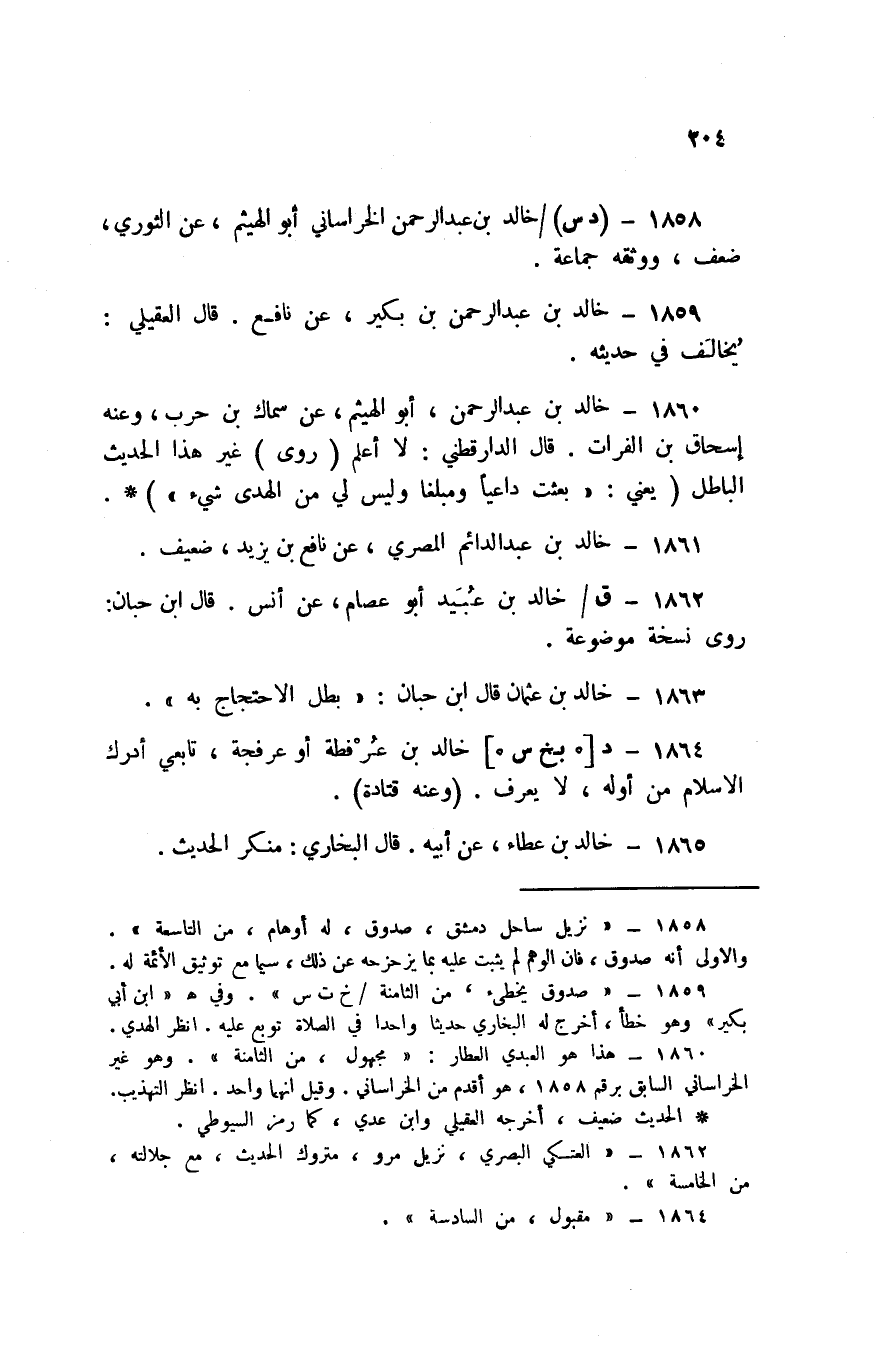 ٢٠٤
١٨٥٨ – (د س) / خالد بن عبدالرحمن الخراساني أبو الهيثم ، عن الثوري ،
ضعف ، ووثقه جماعة .
١٨٥٩ – خالد بن عبدالرحمن بن بكير ، عن نافع . قال العقيلي :
يُخالَف في حديثه .
١٨٦٠ – خالد بن عبدالرحمن ، أبو الهيثم ، عن سماك بن حرب ، وعنه
إسحاق بن الفرات . قال الدارقطني : لا أعلم ( روى ) غير هذا الحديث
الباطل ( يعني : « بعثت داعياً ومبلغا وليس لي من الهدى شيء » ) * .
١٨٦١ – خالد بن عبدالدائم المصري ، عن نافع بن يزيد ، ضعيف .
١٨٦٢ – ق / خالد بن عُبَيد أبو عصام ، عن أنس . قال ابن حبان :
روى نسخة موضوعة .
١٨٦٣ – خالد بن عثمان قال ابن حبان : « بطل الاحتجاج به » .
١٨٦٤ – د [ ٥ بخ س ٥ ] خالد بن عُرْفطة أو عرفجة ، تابعي أدرك
الاسلام من أوله ، لا يعرف . (وعنه قتادة) .
١٨٦٥ – خالد بن عطاء ، عن أبيه . قال البخاري : منكر الحديث .
١٨٥٨ – « نزيل ساحل دمشق ، صدوق ، له أوهام ، من التاسعة » .
والاولى أنه صدوق ، فان الوهم لم يثبت عليه بما يزحزحه عن ذلك ، سيما مع توثيق الأئمة له .
١٨٥٩ – « صدوق يخطىء ، من الثامنة / خ ت س » . وفي ه « ابن أبي
بكير» وهو خطأ ، أخرج له البخاري حديثا واحدا في الصلاة توبع عليه . انظر الهدي .
١٨٦٠ – هذا هو العبدي العطار : « مجهول ، من الثامنة » . وهو غير
الخراساني السابق برقم ١٨٥٨ ، هو أقدم من الخراساني . وقيل انهما واحد . انظر التهذيب .
* الحديث ضعيف ، أخرجه العقيلي وابن عدي ، كما رمز السيوطي .
١٨٦٢ – « العتكي البصري ، نزيل مرو ، متروك الحديث ، مع جلالته ،
من الخامسة » .
١٨٦٤ – « مقبول ، من السادسة » .